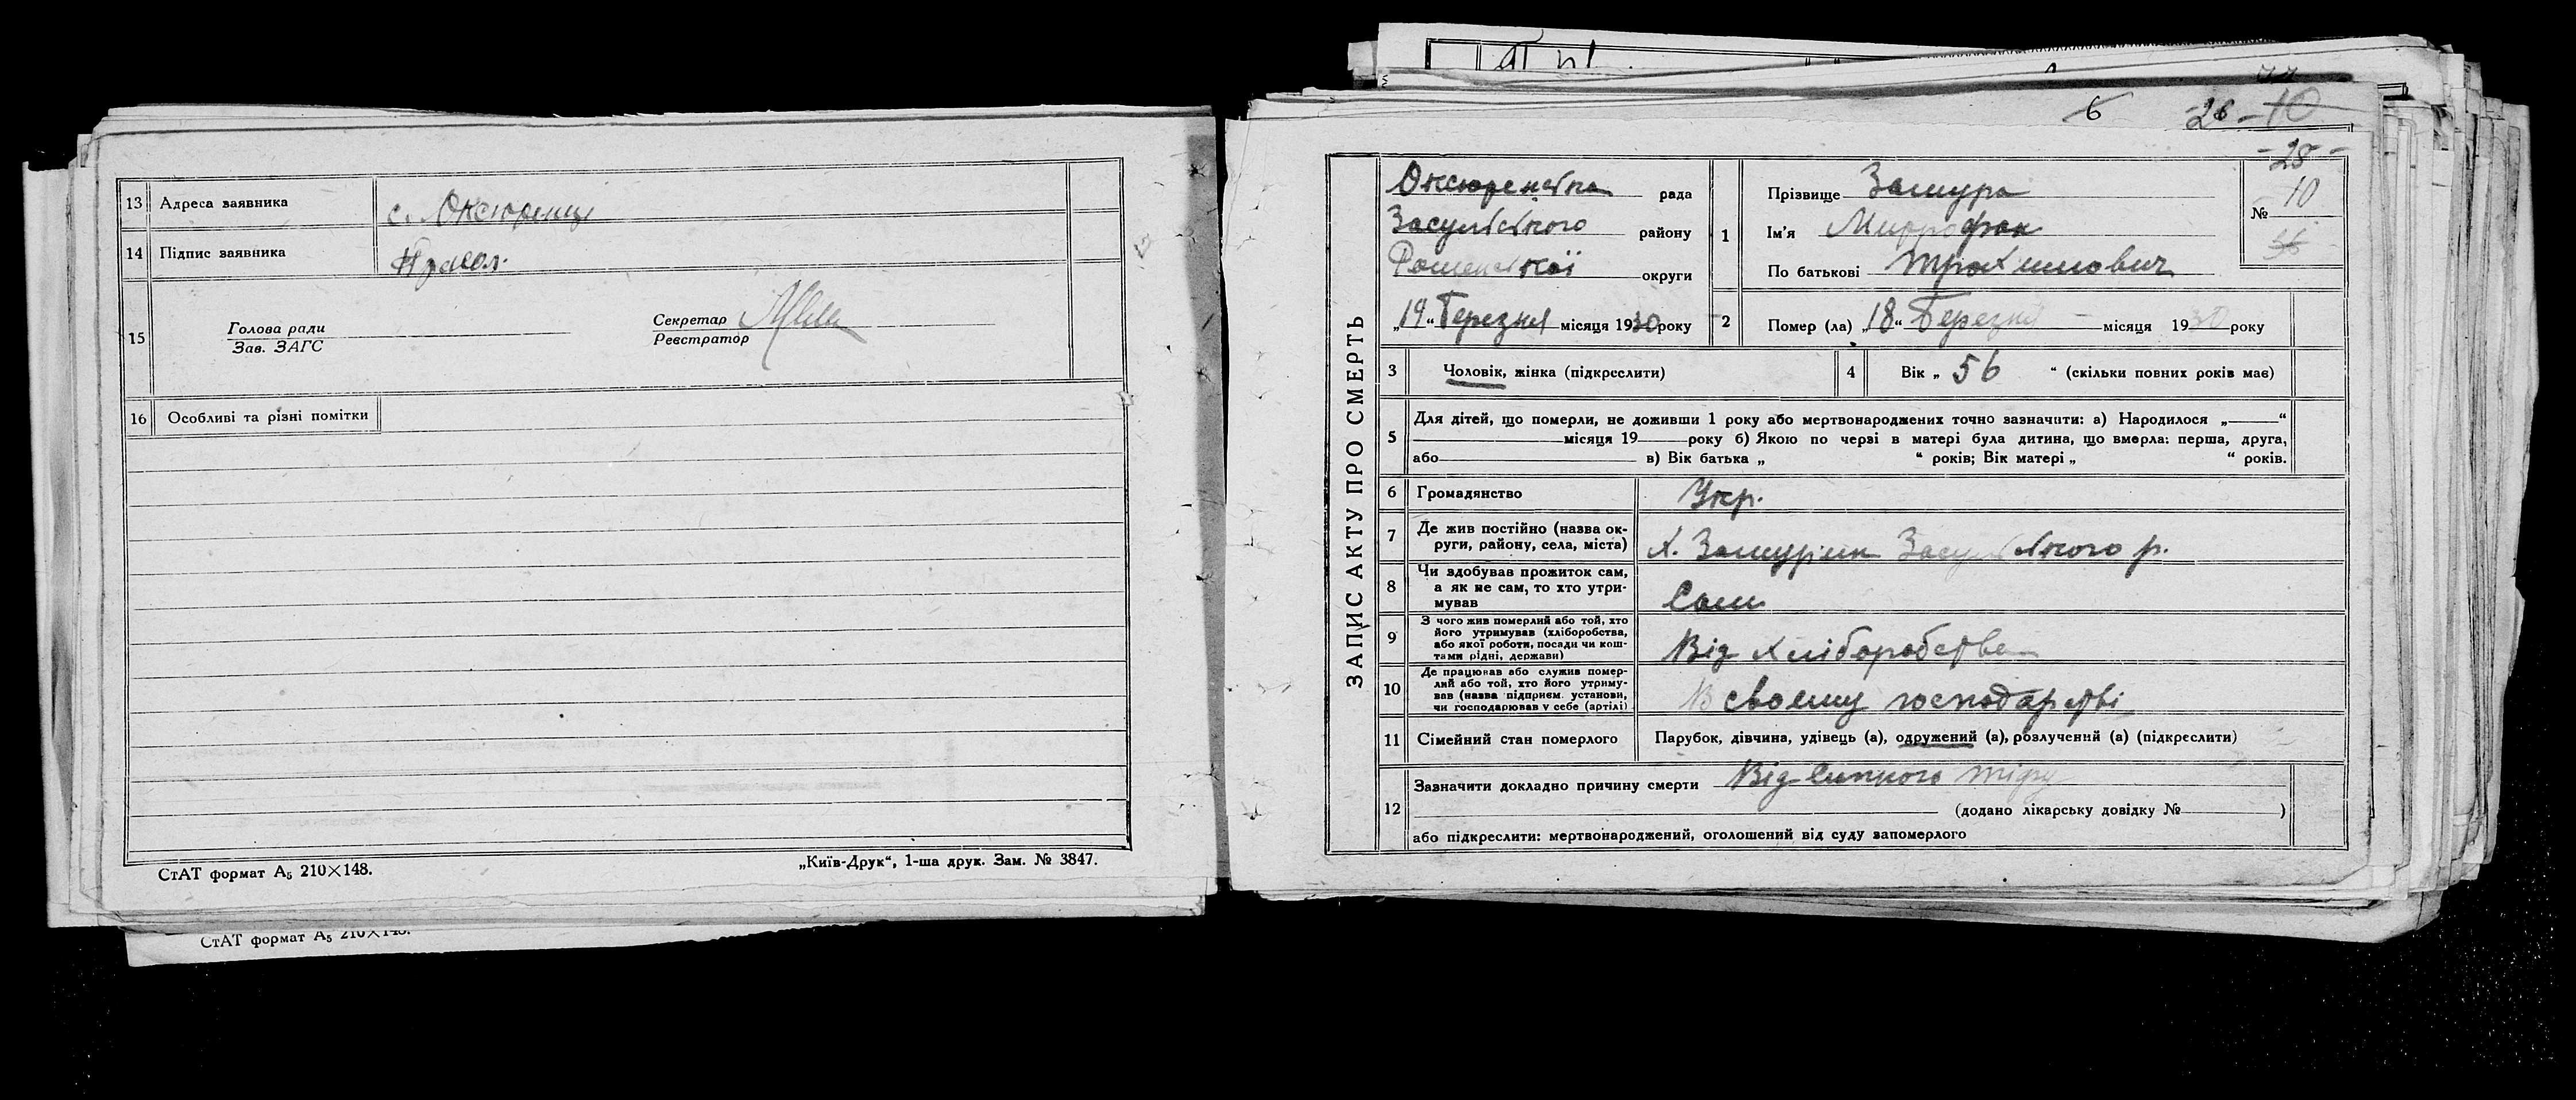 13 Адреса заявника с. Оксюринці
14 Підпис заявника
15 Голова ради
Зав. ЗАГС
Секретар
Реєстратор
16 Особливі та різні помітки
СтАТ формат А₅ 210×148.
„Київ-Друк“, 1-ша друк. Зам. № 3847.
СтАТ формат А₅ 210×148.
6 26 – 10
- 28 -
ЗАПИС АКТУ ПРО СМЕРТЬ
рада
Засульського району
Роменської округи
„19“ Березня місяця 1930 року
1 Прізвище Замура
Ім'я Митрофан
По батькові Трохимович
№ 10
36
2 Помер (ла) „18“ Березня місяця 1930 року
3 Чоловік, жінка (підкреслити)
4 Вік „ 56 “ (скільки повних років має)
5 Для дітей, що померли, не доживши 1 року або мертвонароджених точно зазначити: а) Народилося „ “
місяця 19 року б) Якою по черзі в матері була дитина, що вмерла: перша, друга,
або в) Вік батька „ “ років; Вік матері „ “ років.
6 Громадянство Укр.
7 Де жив постійно (назва ок-
руги, району, села, міста) Х. Засульського р.
8 Чи здобував прожиток сам,
а як не сам, то хто утри-
мував Сам
9 З чого жив померлий або той, хто
його утримував (хліборобства,
або якої роботи, посади чи кош-
тами рідні, держави) Від хліборобства
10 Де працював або служив помер-
лий або той, хто його утриму-
вав (назва підприєм. установи,
чи господарював у себе (артілі) В своєму господарстві
11 Сімейний стан померлого Парубок, дівчина, удівець (а), одружений (а), розлучений (а) (підкреслити)
12 Зазначити докладно причину смерти Від сипного тифу
(додано лікарську довідку № )
або підкреслити: мертвонароджений, оголошений від суду запомерлого